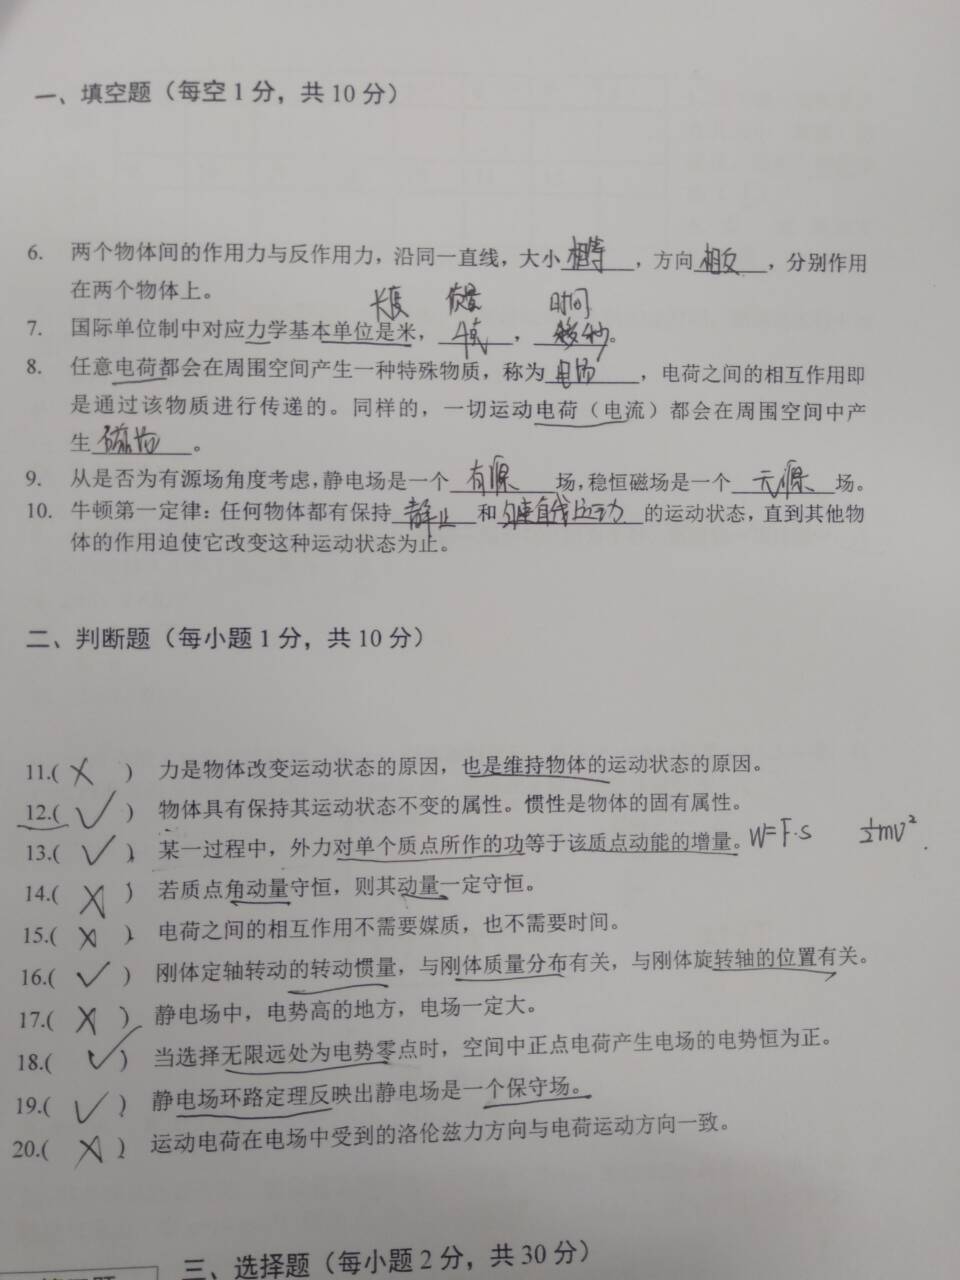 一、填空题（每空1分，共10分）
6. 两个物体间的作用力与反作用力，沿同一直线，大小相等，方向相反，分别作用
在两个物体上。
长度 质量 时间
7. 国际单位制中对应力学基本单位是米，千克，秒。
8. 任意电荷都会在周围空间产生一种特殊物质，称为电场，电荷之间的相互作用即
是通过该物质进行传递的。同样的，一切运动电荷（电流）都会在周围空间中产
生磁场。
9. 从是否为有源场角度考虑，静电场是一个有源场，稳恒磁场是一个无源场。
10. 牛顿第一定律：任何物体都有保持静止和匀速直线运动的运动状态，直到其他物
体的作用迫使它改变这种运动状态为止。
二、判断题（每小题1分，共10分）
11.(×) 力是物体改变运动状态的原因，也是维持物体的运动状态的原因。
12.(✓) 物体具有保持其运动状态不变的属性。惯性是物体的固有属性。
13.(✓) 某一过程中，外力对单个质点所作的功等于该质点动能的增量。W=F·S ½mv²
14.(×) 若质点角动量守恒，则其动量一定守恒。
15.(×) 电荷之间的相互作用不需要媒质，也不需要时间。
16.(✓) 刚体定轴转动的转动惯量，与刚体质量分布有关，与刚体旋转轴的位置有关。
17.(×) 静电场中，电势高的地方，电场一定大。
18.(✓) 当选择无限远处为电势零点时，空间中正点电荷产生电场的电势恒为正。
19.(✓) 静电场环路定理反映出静电场是一个保守场。
20.(×) 运动电荷在电场中受到的洛伦兹力方向与电荷运动方向一致。
三、选择题（每小题2分，共30分）